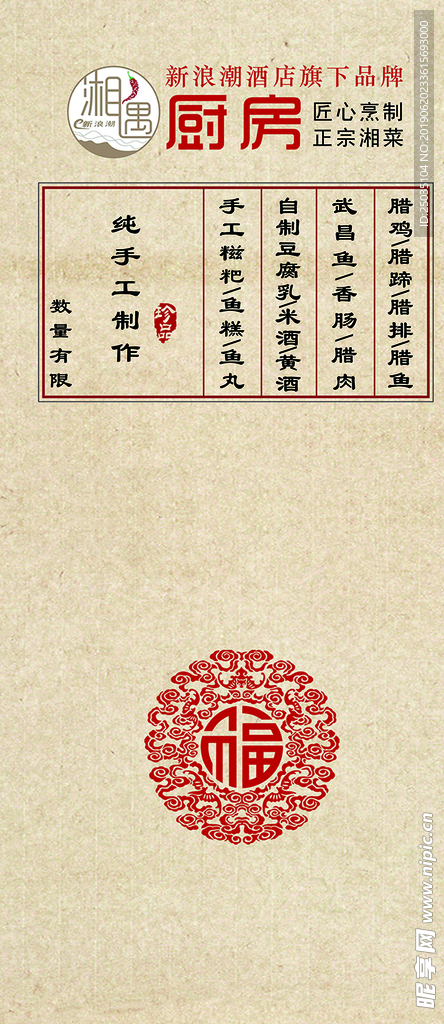 湘遇
e新浪潮
新浪潮酒店旗下品牌
厨房
匠心烹制
正宗湘菜
腊鸡/腊蹄/腊排/腊鱼
武昌鱼/香肠/腊肉
自制豆腐乳/米酒/黄酒
手工糍粑/鱼糕/鱼丸
珍品
纯手工制作
数量有限
福
昵享网 www.nipic.cn
ID:25035104 NO:20190620233615693000